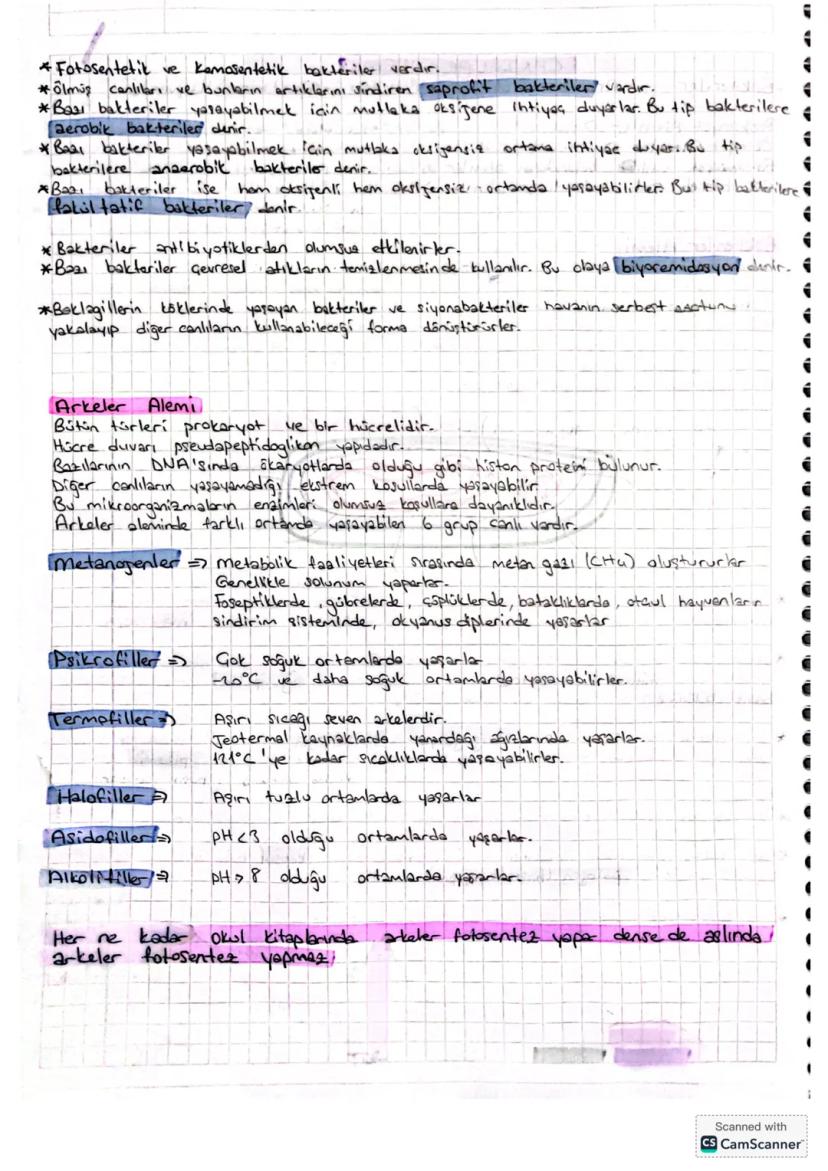 * Fotosentetik ve Kemosentetik bakteriler vardır.
* Ölmüş canlıları ve bunların artıklarını sindiren saprofit bakteriler vardır.
* Bazı bakteriler yaşayabilmek için mutlaka oksijene ihtiyaç duyarlar. Bu tip bakterilere
aerobik bakteriler denir.
* Bazı bakteriler yaşayabilmek için mutlaka oksijensiz ortama ihtiyaç duyar. Bu tip
bakterilere anaerobik bakteriler denir.
* Bazı bakteriler ise hem oksijenli hem oksijensiz ortamda yaşayabilirler. Bu tip bakterilere
fakültatif bakteriler denir.
* Bakteriler antibiyotiklerden olumsuz etkilenirler.
* Bazı bakteriler çevresel atıkların temizlenmesinde kullanılır. Bu olaya biyoremidasyon denir.
* Baklagillerin köklerinde yaşayan bakteriler ve siyonabakteriler havanın serbest azotunu
yakalayıp diğer canlıların kullanabileceği forma dönüştürürler.
Arkeler Alemi
Bütün türleri prokaryot ve bir hücrelidir.
Hücre duvarı pseudapeptidoglikan yapıdadır.
Bazılarının DNA'sında ökaryotlarda olduğu gibi histon proteini bulunur.
Diğer canlıların yaşayamadığı ekstrem koşullarda yaşayabilir
Bu mikroorganizmaların enzimleri olumsuz koşullara dayanıklıdır.
Arkeler aleminde farklı ortamda yaşayabilen 6 grup canlı vardır.
Metanojenler => metabolik faaliyetleri sırasında metan gazı (CH4) oluştururlar
Genellikle solunum yaparlar.
Foseptiklerde, gübrelerde, çöplüklerde, bataklıklarda, otçul hayvanların
sindirim sisteminde, okyanus diplerinde yaşarlar
Psikrofiller => Çok soğuk ortamlarda yaşarlar
-20°C ve daha soğuk ortamlarda yaşayabilirler.
Termofiller => Aşırı sıcağı seven arkelerdir.
Jeotermal kaynaklarda yanardağı ağızlarında yaşarlar.
121°C'ye kadar sıcaklıklarda yaşayabilirler.
Halofiller => Aşırı tuzlu ortamlarda yaşarlar
Asidofiller => pH<3 olduğu ortamlarda yaşarlar.
Alkolifiller => pH>8 olduğu ortamlarda yaşarlar.
Her ne kadar okul kitaplarında arkeler fotosentez yapar dense de aslında
arkeler fotosentez yapmaz.
Scanned with
CS CamScanner